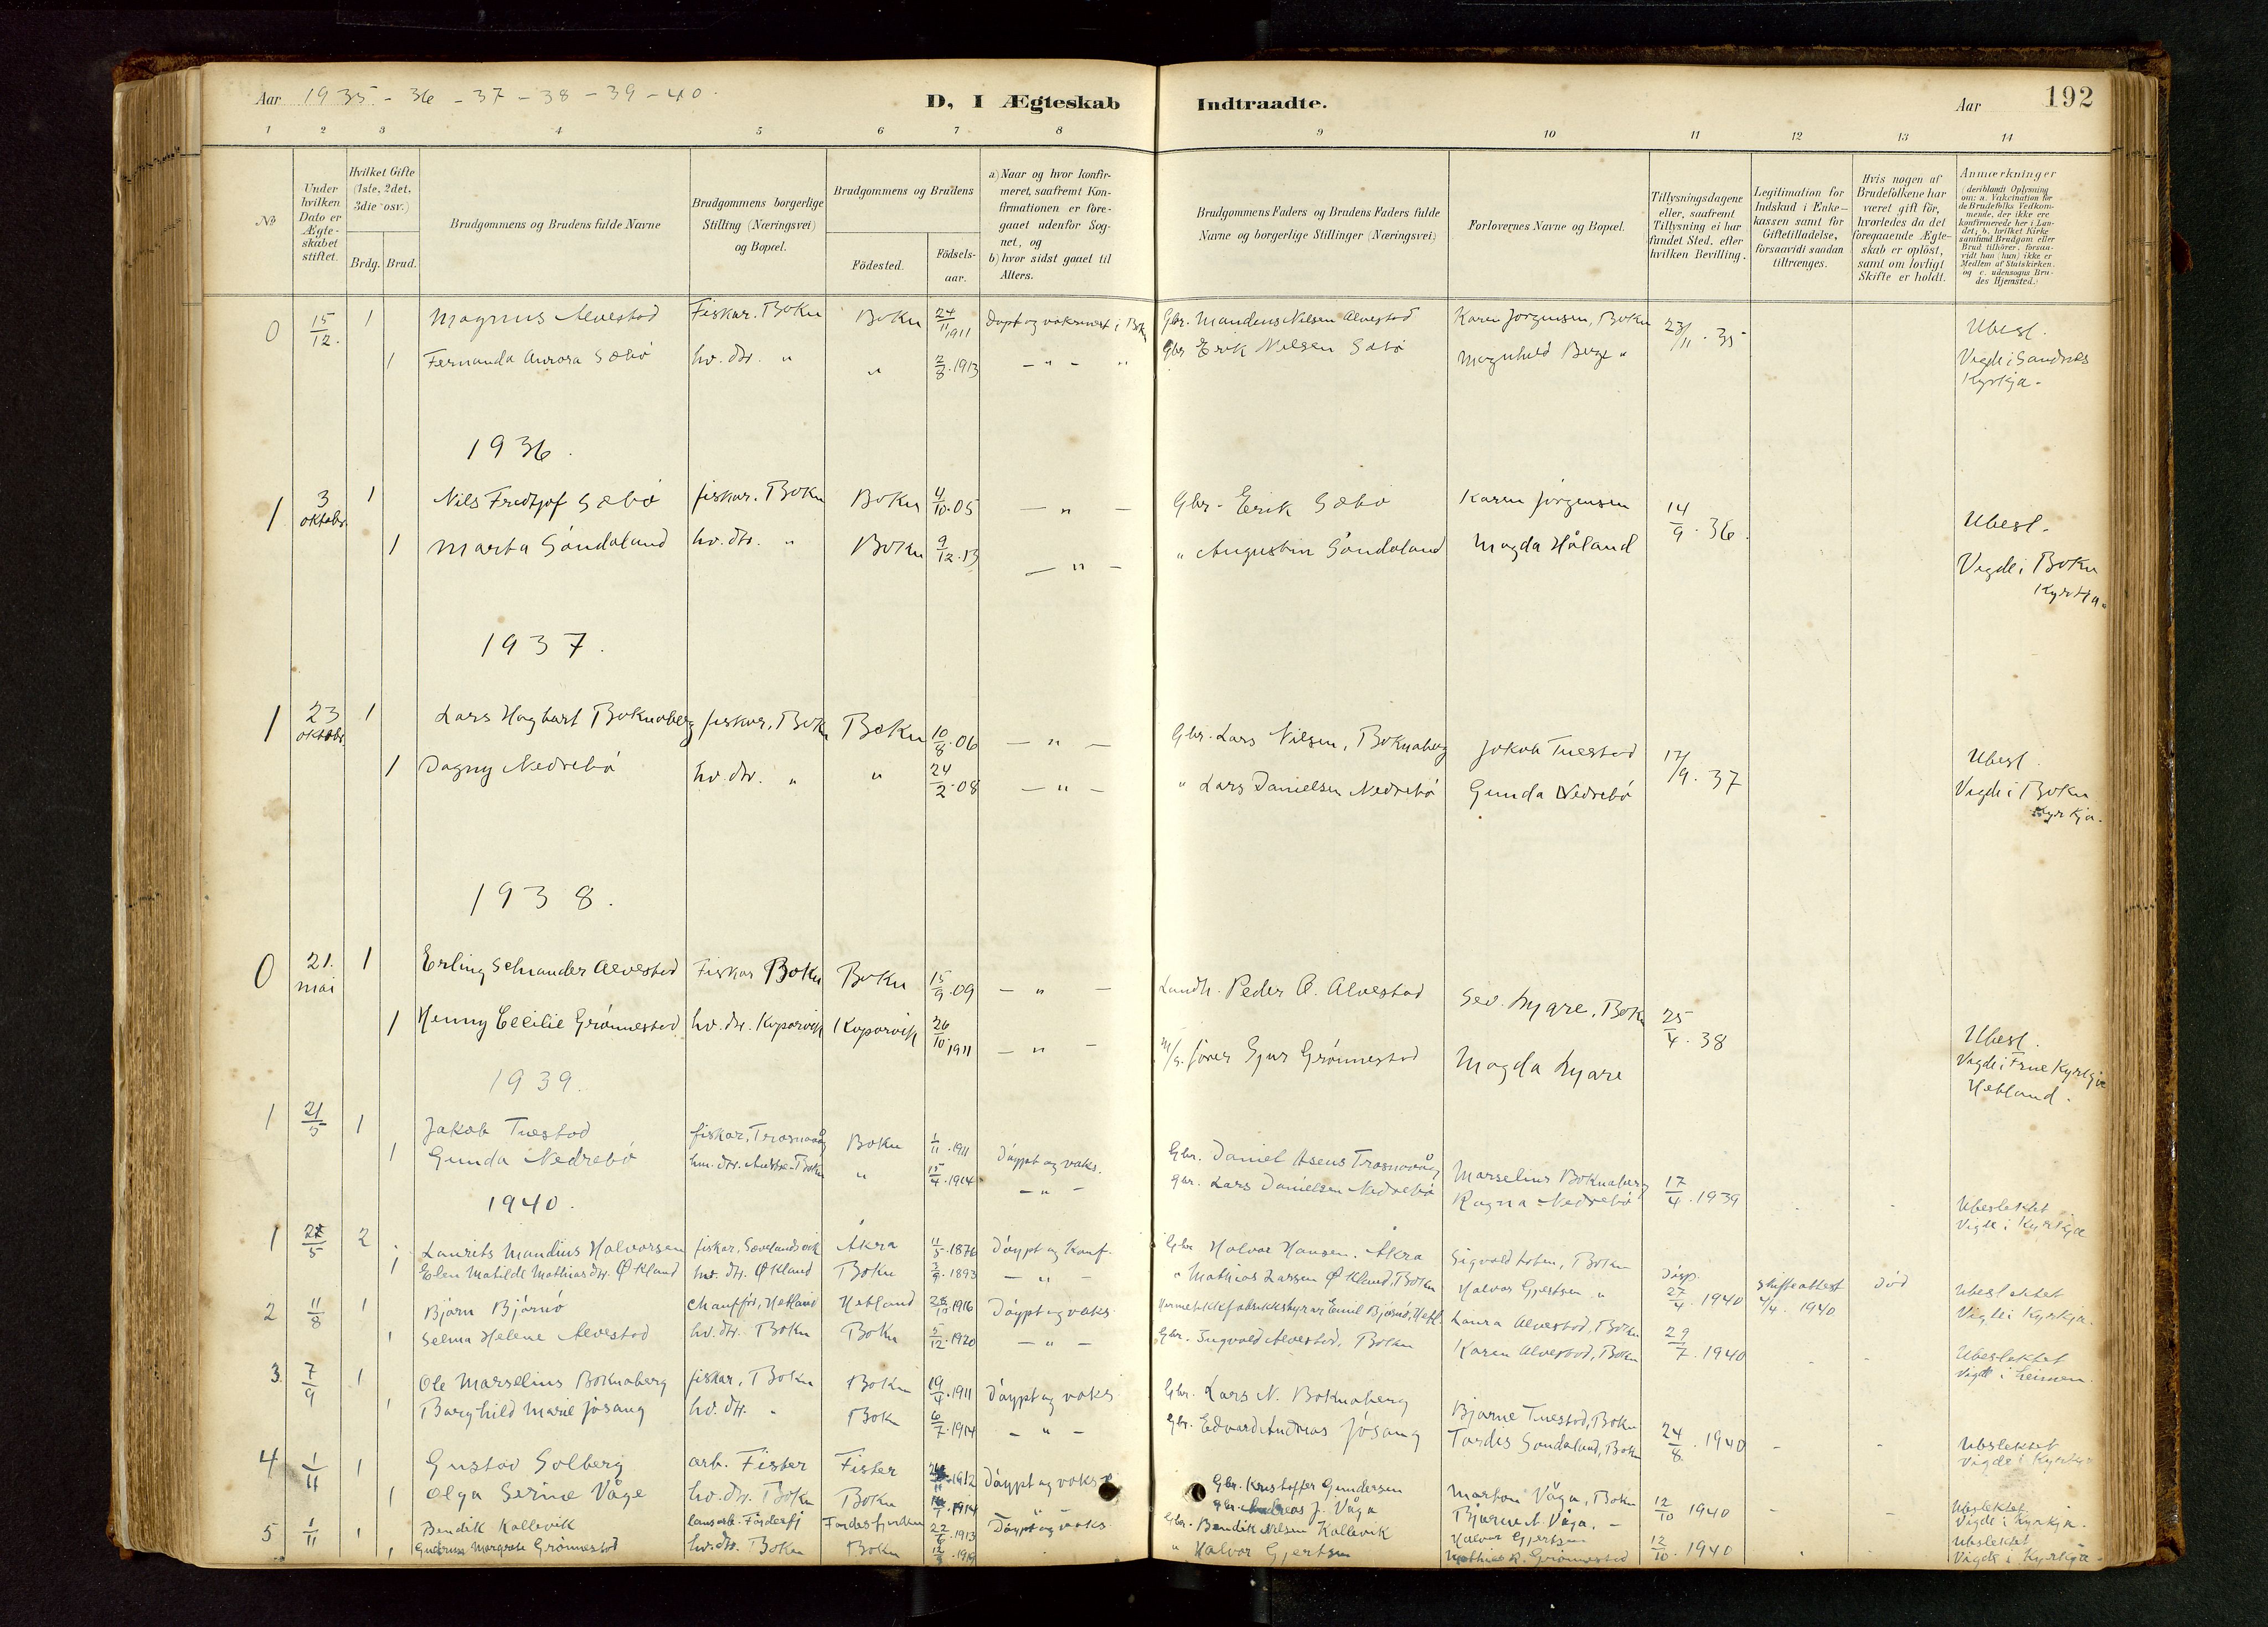 Aar 1935 - 36 - 37 - 38 - 39 - 40.
D, I Ægteskab Indtraadte.
Aar 192
1 2 3 4 5 6 7 8 9 10 11 12 13 14
No
Under hvilken Dato er Ægteskabet stiftet.
Hvilket Gifte (1ste, 2det, 3die osv.)
Brdg. Brud.
Brudgommens og Brudens fulde Navne
Brudgommens borgerlige Stilling (Næringsvei) og Bopæl.
Brudgommens og Brudens
Födested.
Födsels-aar.
a) Naar og hvor konfir-
meret, saafremt Kon-
firmationen er fore-
gaaet udenfor Sog-
net, og
b) hvor sidst gaaet til
Alters.
Brudgommens Faders og Brudens Faders fulde
Navne og borgerlige Stillinger (Næringsvei)
Forlovernes Navne og Bopæl.
Tillysningsdagene
eller, saafremt
Tillysning ei har
fundet Sted, efter
hvilken Bevilling.
Legitimation for
Indskud i Enke-
kassen samt for
Giftetilladelse,
forsaavidt saadan
tiltrænges.
Hvis nogen af
Brudefolkene har
været gift för,
hvorledes da det
foregaaende Ægte-
skab er oplöst,
samt om lovligt
Skifte er holdt.
Anmærkninger
(deriblandt Oplysning
om: a. Vakcination for
de Brudefolks Vedkom-
mende, der ikke ere
konfirmerede her i Lan-
det; b. hvilket Kirke
samfund Brudgom eller
Brud tilhörer, forsaa-
vidt han (hun) ikke er
Medlem af Statskirken.
og c. udensogns Bru-
des Hjemsted.)
0 15/12. 1 Magnus Alvestad Fiskar. Bokn Bokn 24/11 1911 Döpt og vaksinert i Bokn Gbr. Mandius Nilsen Alvestad Karen Jörgensen, Bokn 23/11. 35 Ubesl.
1 Fernanda Aurora Sæbö hv. dtr. " " 2/8. 1913 - " - " Gbr Erik Nilsen Sæbö Magnhild Berge " Vigde i Sandnes
Kyrkja.
1936.
1 3 oktobr. 1 Nils Fredtjof Sæbö fiskar. Bokn Bokn 4/10. 05 - " - Gbr. Erik Sæbö Karen Jörgensen 14/9. 36. Ubesl.
1 Marta Söndaland hv. dtr. " Bokn 9/12. 13 - " - " Augustin Söndaland Magda Håland Vigde i Bokn
Kyrkja.
1937.
1 23 oktobr. 1 Lars Hagbart Boknaberg fiskar, Bokn Bokn 10/8. 06 - " - Gbr. Lars Nilsen, Boknaberg Jakob Tuestad 17/9. 37 Ubesl.
1 Dagny Nedrebö hv. dtr. " " 24/2. 08 - " - " Lars Danielsen Nedrebö Gunda Nedrebö Vigde i Bokn
Kyrkja.
1938.
0 21. mai 1 Erling Schander Alvestad Fiskar Bokn Bokn 15/9. 09 - " - Landh. Peder A. Alvestad Sev. Lygre, Bokn 25/4. 38 Ubesl.
1 Henny Cecilie Grönnestad hv. dtr. Kopervik Kopervik 26/10. 1911 - " - Gjur Grönnestad Magda Lygre Vigde i Frue Kyrkja
Hetland.
1939.
1 21/5 1 Jakob Tuestad fiskar, Trosnavåg Bokn 1/11. 1911 Döypt og vaks. Gbr. Daniel Aseus Trosnavåg Marselius Boknaberg 17/4. 1939 Ubeslektet
1 Gunda Nedrebö hv. dtr. Austre-Bokn " 15/4. 1914 - " - gbr. Lars Danielsen Nedrebö Ragna Nedrebö Vigde i Kyrkja
1940.
1 /5 2 Laurits Mandius Halvorsen fiskar, Sævelandsvik Åkra 11/5. 1876 Döypt og Konf. Gbr Halvor Hansen. Åkra Sigvald , Bokn 27/4. 1940 skifteattest 4/4. 1940 död Ubeslektet
1 Elen Matilde Mathiasdtr. Økland hv. dtr. Økland Bokn 3/9. 1893 - " - " Mathias Larsen Økland, Bokn Halvor Gjertsen " Vigde i Kyrkja.
2 11/8 1 Björn Björnö Chauffør, Hetland Hetland /10 1916 Döypt og vaks Hermetikkfabrikkstyrar Emil Björnö, Hetl. Laura Alvestad, Bokn 29/7. 1940 Ubeslektet
1 Selma Helene Alvestad hv. dtr. Bokn Bokn 5/12. 1920 - " - Gbr. Ingvald Alvestad, Bokn Karen Alvestad, Bokn Vigde i heimen.
3. 7/9 1 Ole Marselius Boknaberg fiskar, Bokn Bokn 19/4. 1911 Döypt og vaks Gbr. Lars N. Boknaberg Bjarne Tuestad, Bokn 24/8. 1940 Ubeslektet
1 Borghild Marie Jösang hv. dtr. " Bokn 6/7. 1914 - " - Gbr. Edvard Andreas Jösang Tordis Söndaland, Bokn Vigde i Kyrkja
4 1/11 1 Gustav Solberg arb. Fister Fister 1912 Döypt og vaks Gbr. Kristoffer Gundersen Marton Våga, Bokn 12/10 1940 Ubeslektet
1 Olga Serine Våge hv. dtr. Bokn Bokn 1914 - " - Gbr. Andreas J. Våga Bjarne A. Våga. - Vigde i Kyrkja.
5 1/11 1 Bendik Kallevik Fördesfj Fördesfjorden 22/6. 1913 Döypt og vaks Gbr. Bendik Nilsen Kallevik Halvor Gjertsen 12/10. 1940 Ubeslektet
1 Gudrun Margrete Grönnestad hv. dtr. Bokn Bokn 1919 " Halvor Gjertsen Mathias R. Grönnestad Vigde i Kyrkja.